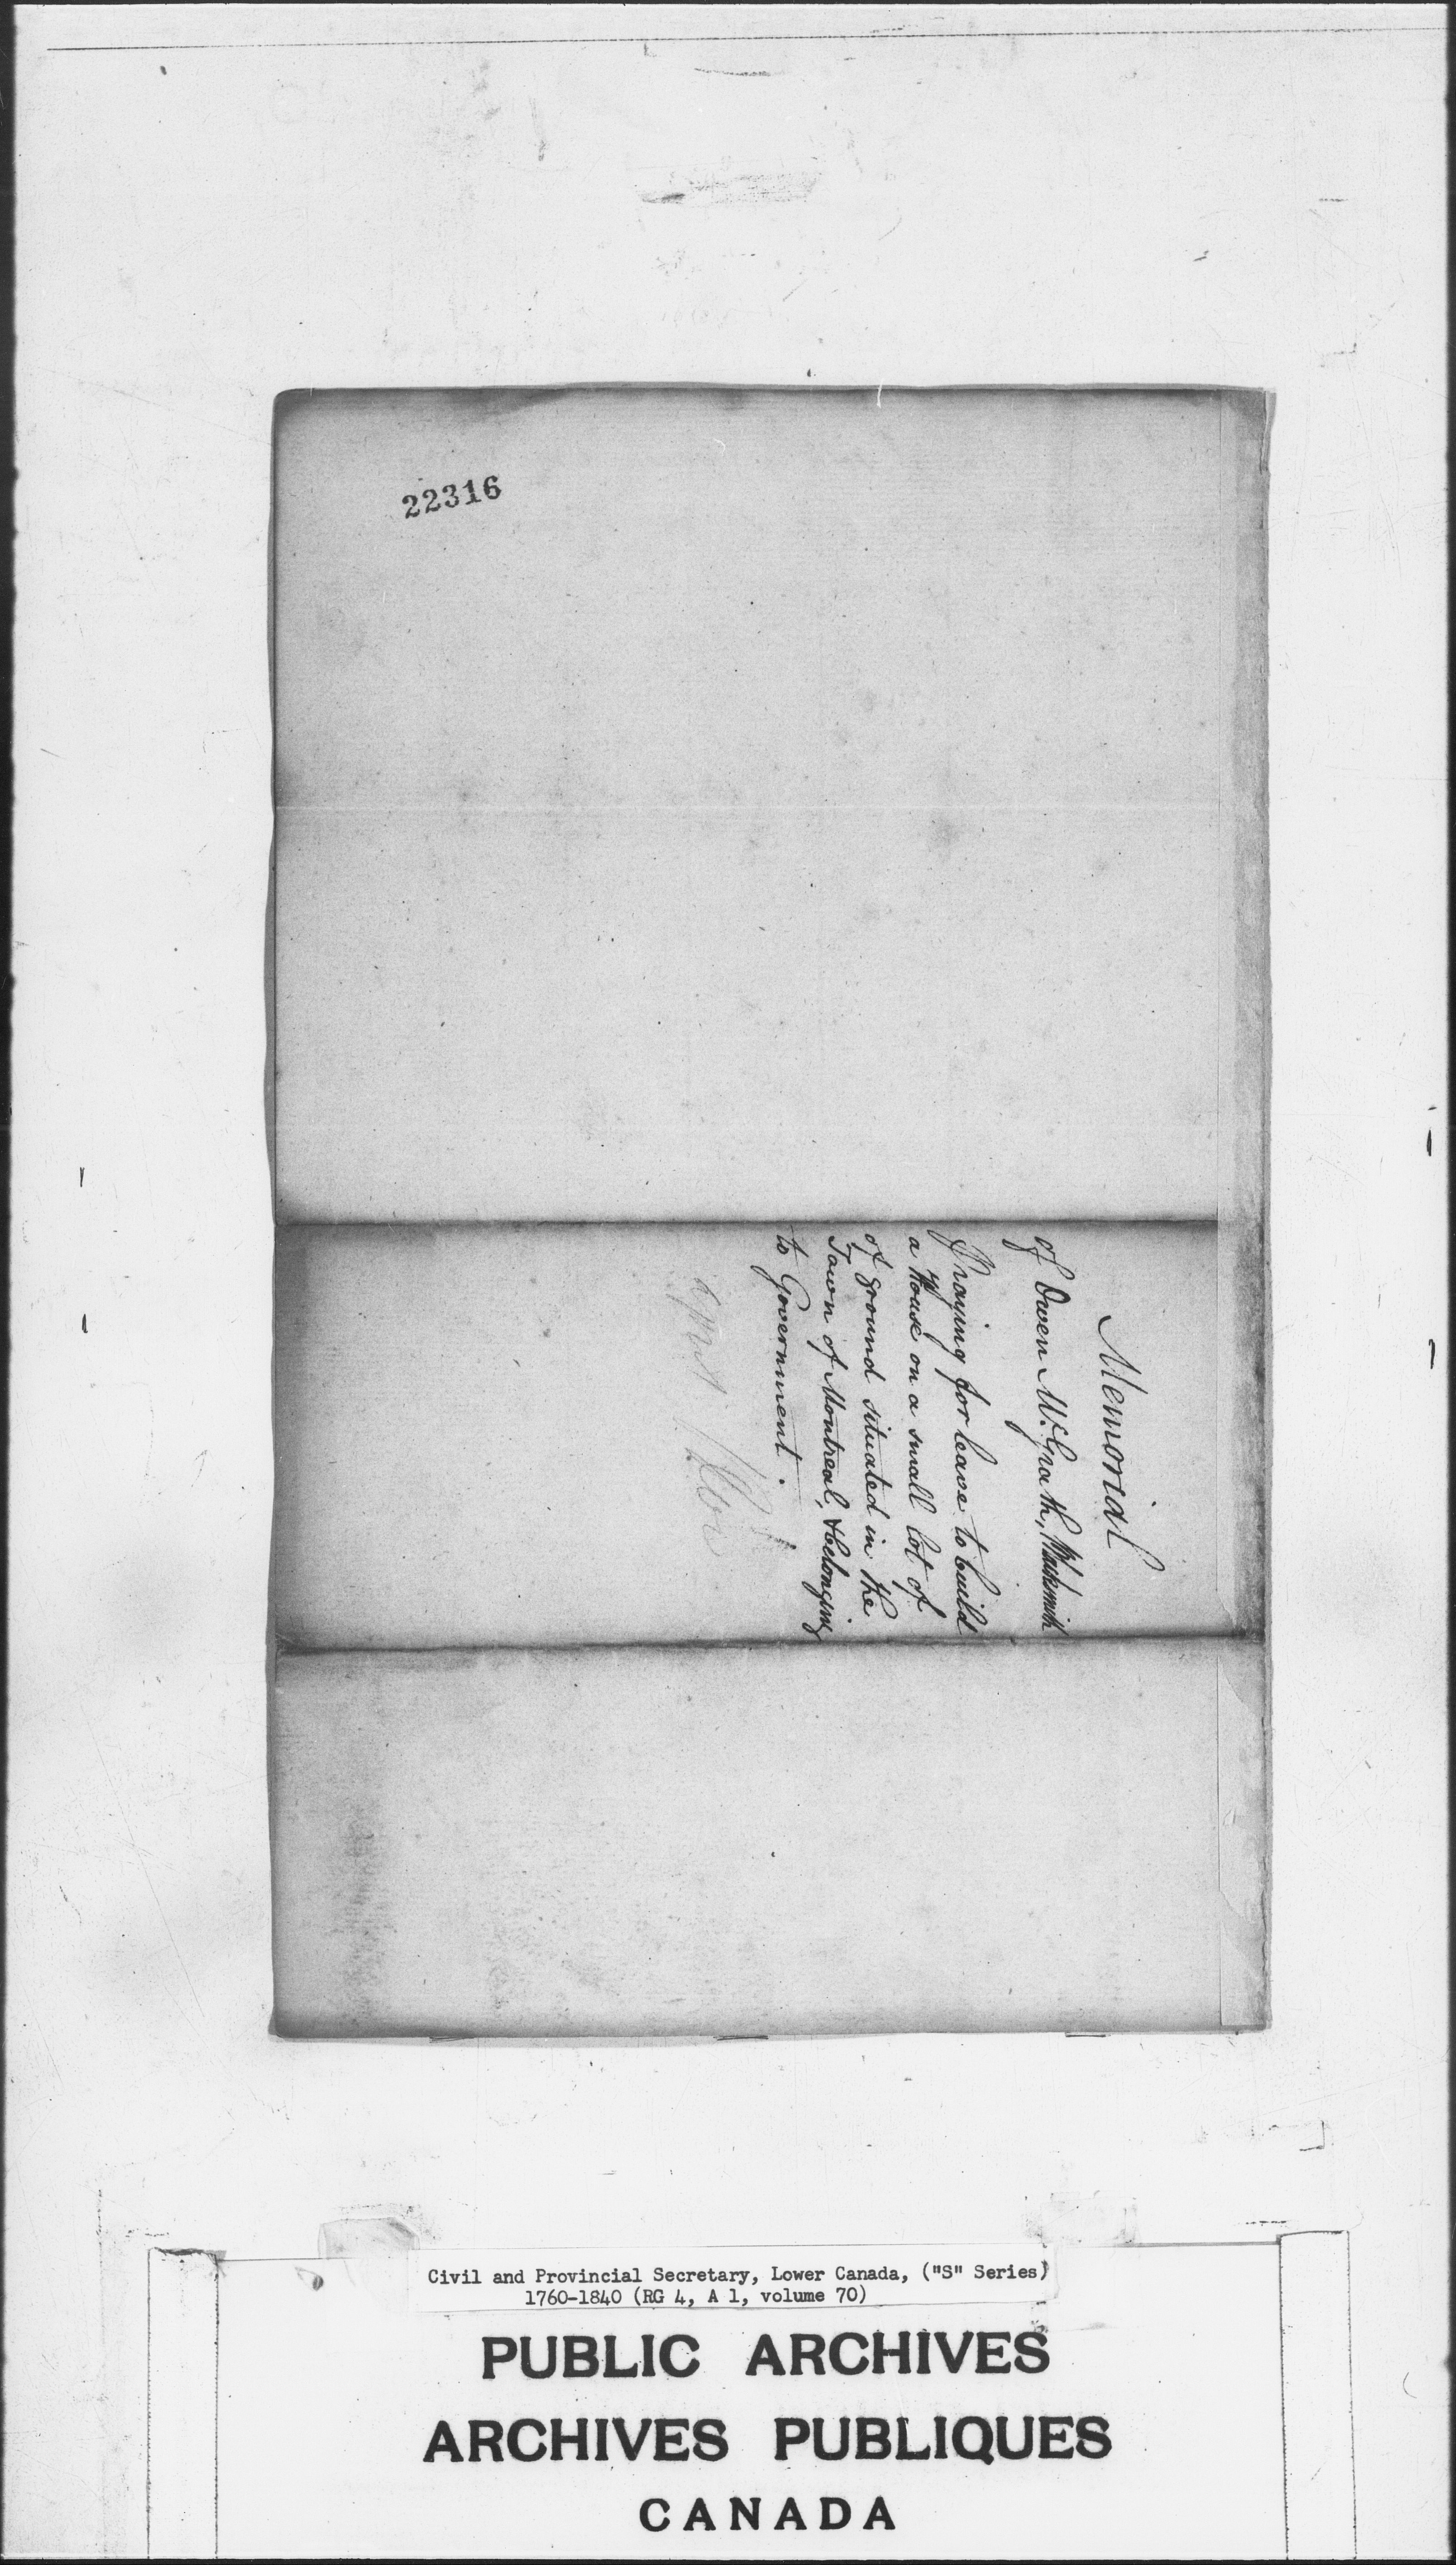 22316
Memorial
of Owen McGrath, Blacksmith
Praying for leave to build
a House on a small lot of
of ground situated in the
Town of Montreal, & belonging
to Government.
Civil and Provincial Secretary, Lower Canada, ("S" Series)
1760-1840 (RG 4, A 1, volume 70)
PUBLIC ARCHIVES
ARCHIVES PUBLIQUES
CANADA